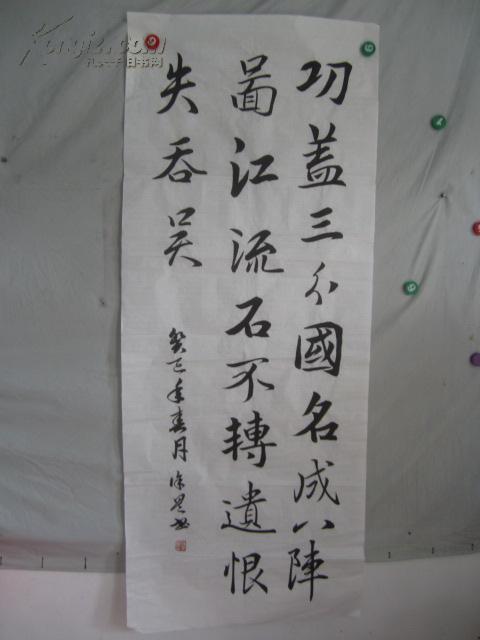 功盖三分國名成八陣
啚江流石不轉遺恨
失吞吴
癸巳年春月徐
Kongfz.com
孔夫子旧书网